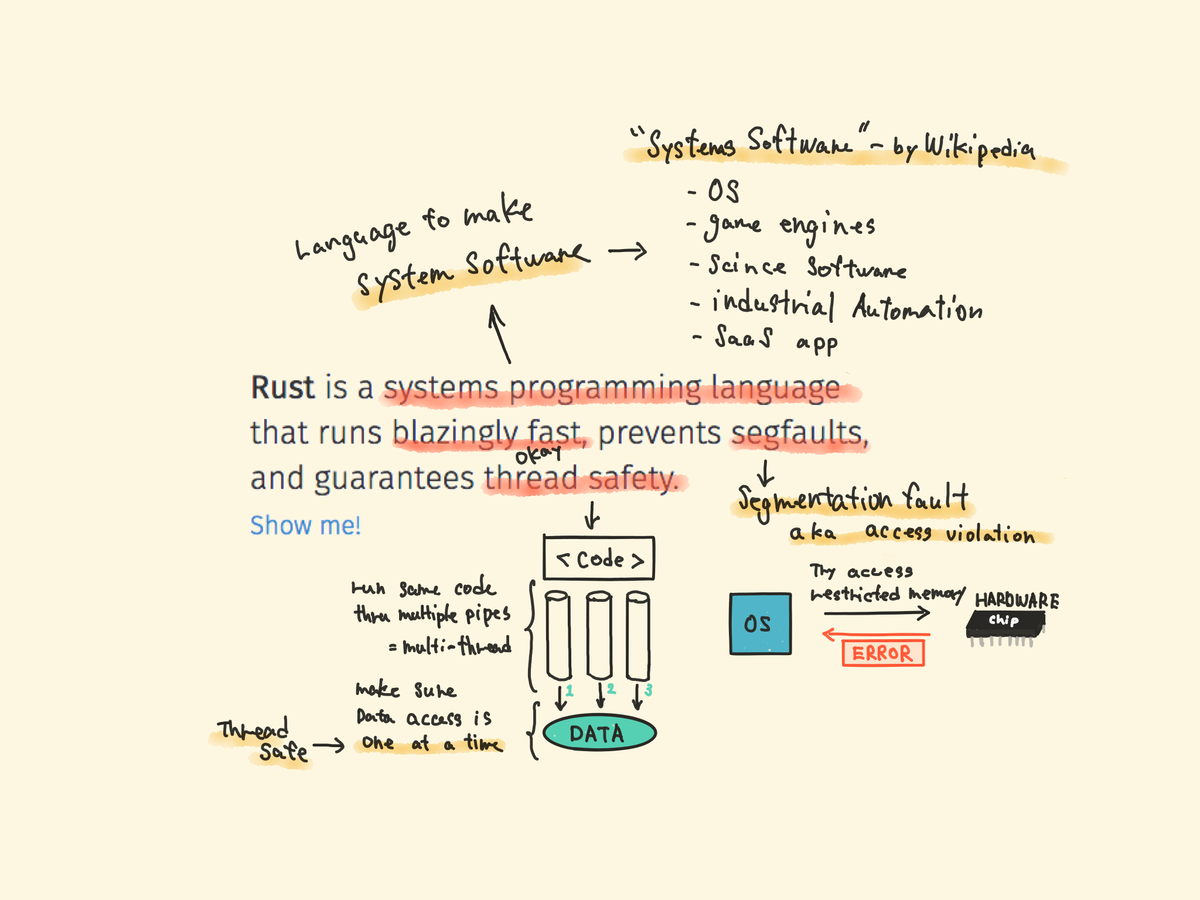 "Systems Software" - by Wikipedia
- OS
- game engines
- Scince Software
- industrial Automation
- SaaS app
Language to make
System Software
Rust is a systems programming language
that runs blazingly fast, prevents segfaults,
okay
and guarantees thread safety.
Show me!
Segmentation fault
aka access violation
Try access
restricted memory
HARDWARE
chip
OS
ERROR
< Code >
run same code
thru multiple pipes
= multi-thread
1 2 3
make sure
Data access is
one at a time
DATA
Thread
Safe